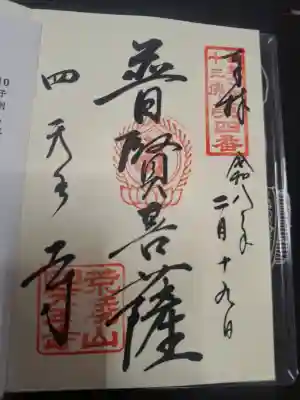 奉拝
十三佛
四番
令和八年
二月十九日
普賢菩薩
四天王寺
荒陵山
10